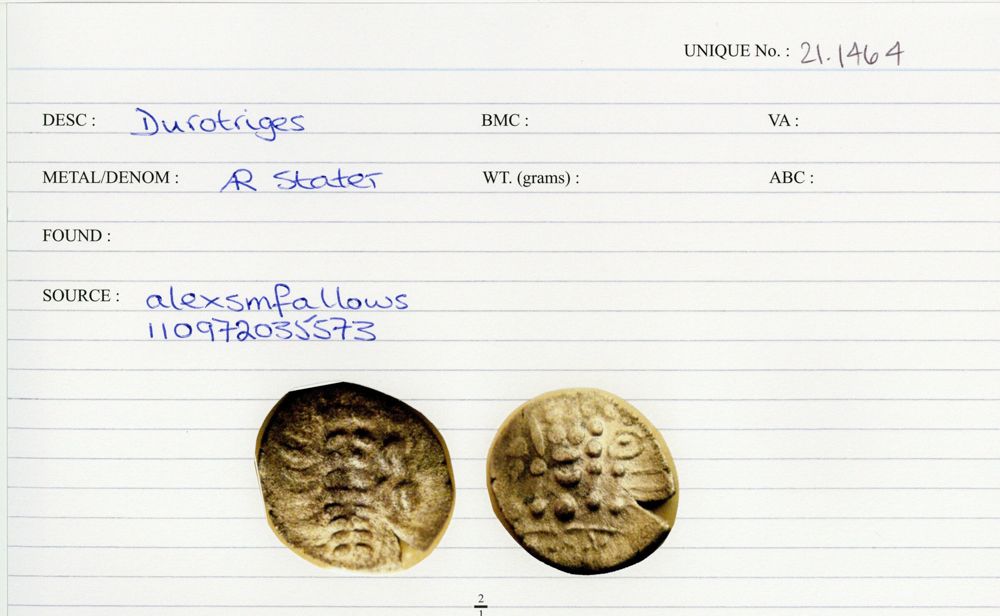 UNIQUE No. : 21.1464
DESC : Durotriges BMC : VA :
METAL/DENOM : AR Stater WT. (grams) : ABC :
FOUND :
SOURCE : alexsmfallows
110972035573
2
1